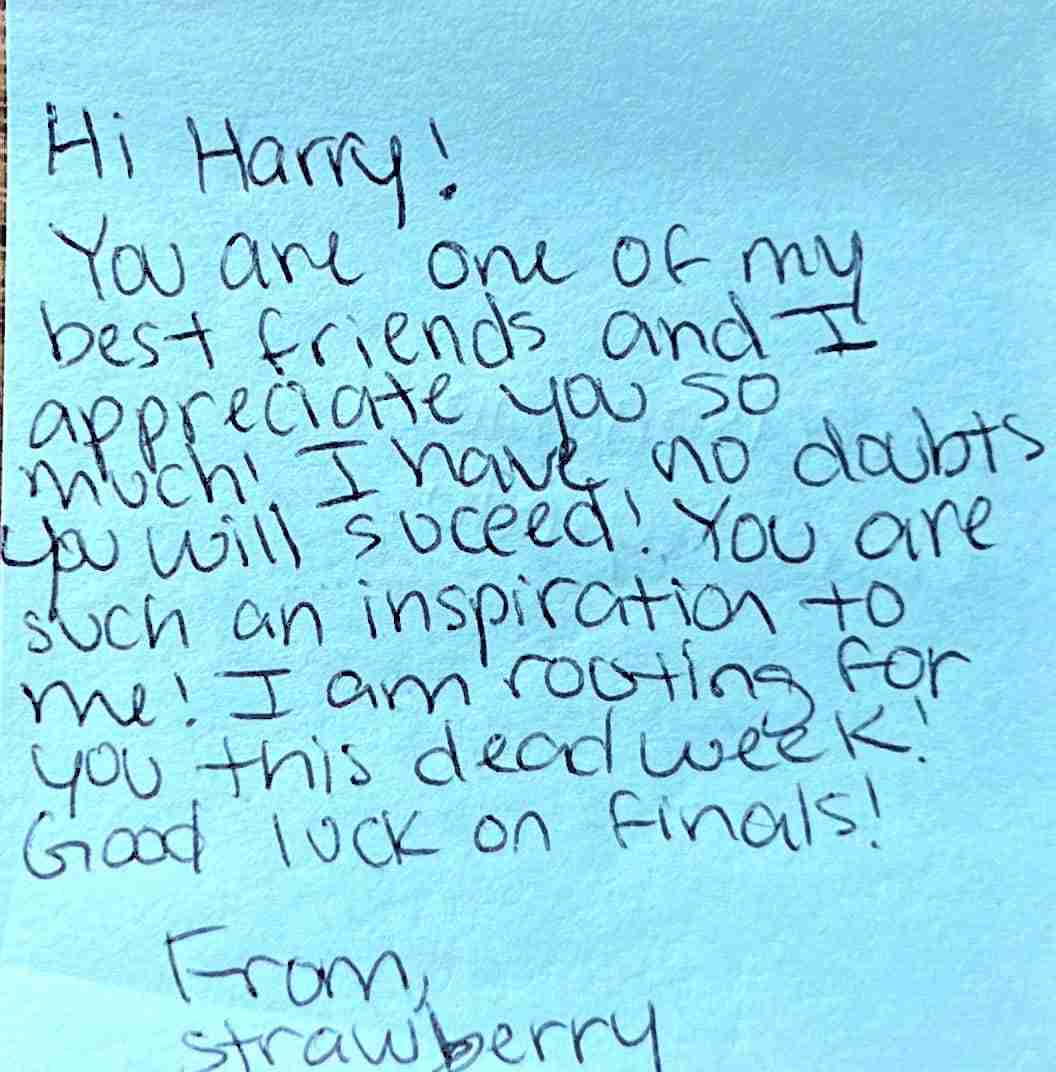 Hi Harry!
You are one of my
best friends and I
appreciate you so
much! I have no doubts
you will suceed! You are
such an inspiration to
me! I am rooting for
you this dead week!
Good luck on finals!
From,
strawberry